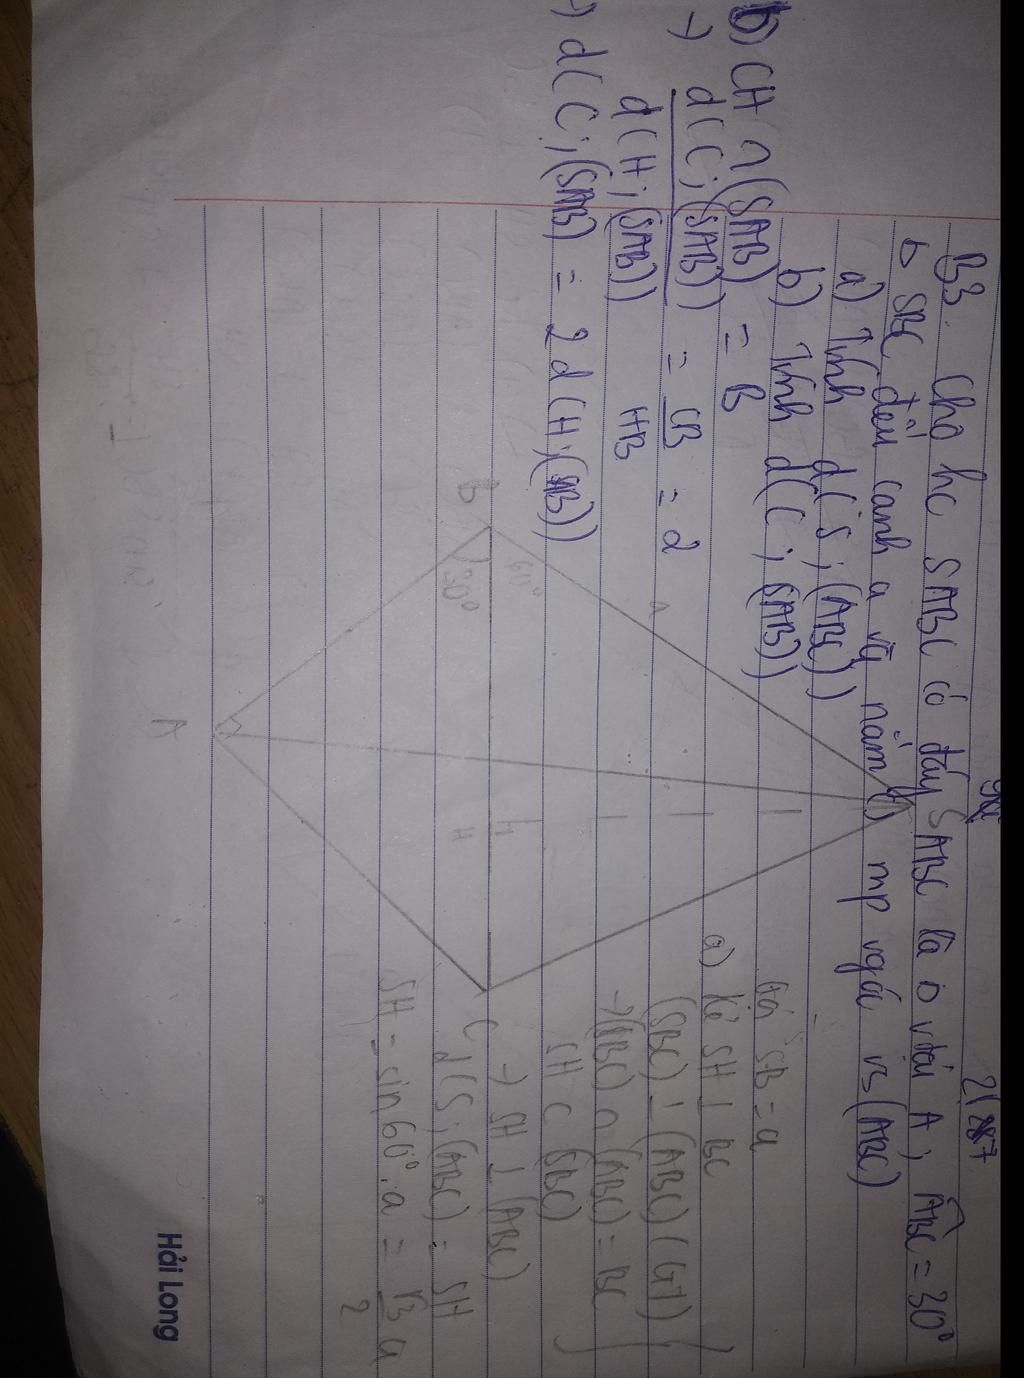 2/287
B3. Cho hc SABC có đáy ABC là Δ v tại A, ABC = 30°
Δ SBC đều cạnh a và nằm mp vgóc vs (ABC)
a) Tính d(S; (ABC))
b) Tính d(C; (SAB))
b) CH ∩ (SAB) = B
→ d(C; (SAB)) / d(H; (SAB)) = CB / HB = 2
→ d(C; (SAB)) = 2d(H; (SAB))
S
a
60°
30°
B
H
C
A
SB = a
a) Kẻ SH ⊥ BC
(SBC) ⊥ (ABC) (GT)
(SBC) ∩ (ABC) = BC
SH ⊂ (SBC)
→ SH ⊥ (ABC)
d(S; (ABC) = SH
SH = sin 60°. a = √3/2 a
Hải Long